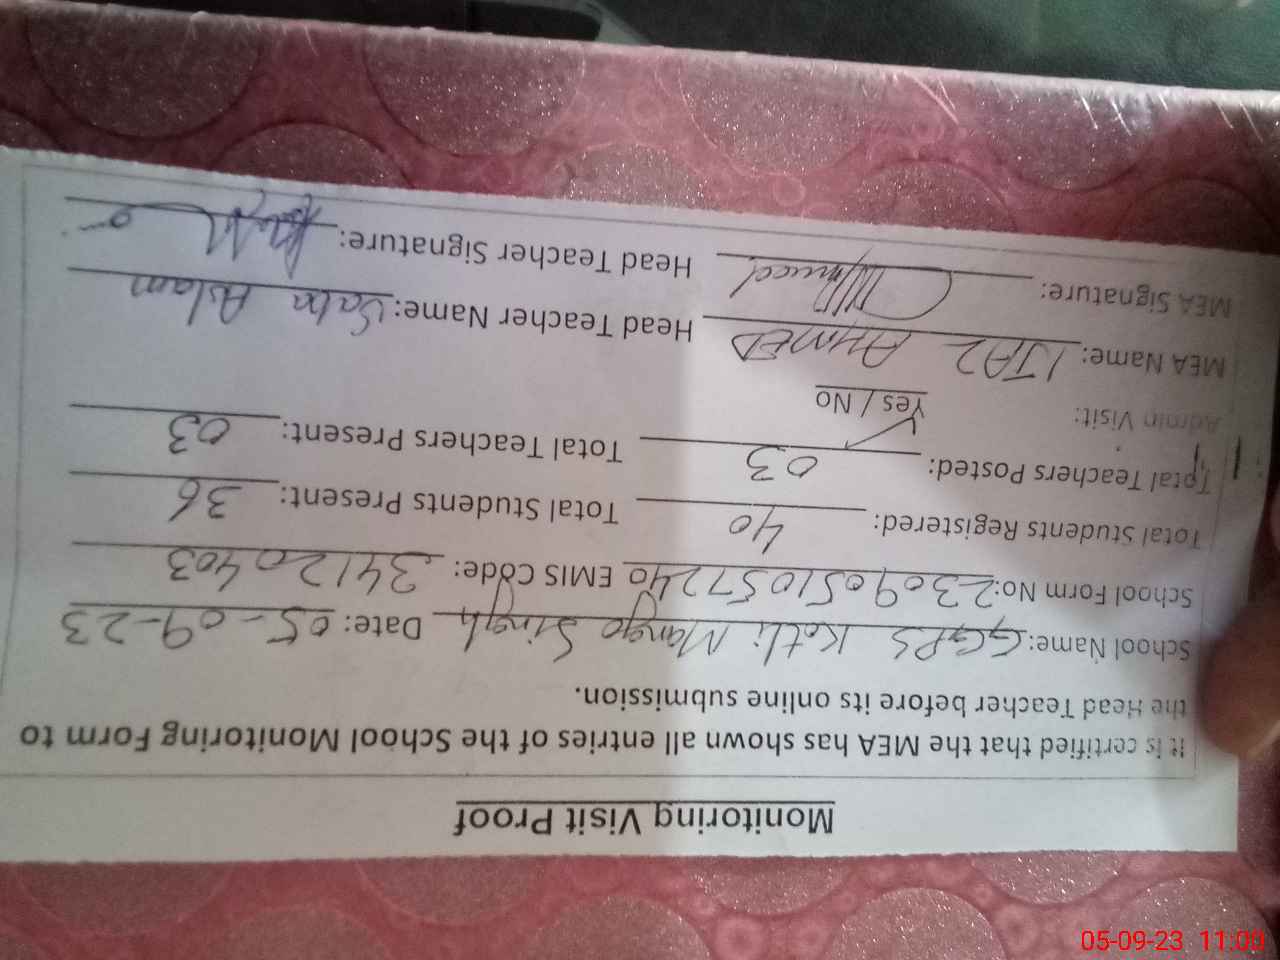 Monitoring Visit Proof
It is certified that the MEA has shown all entries of the School Monitoring Form to
the Head Teacher before its online submission.
School Name: GGPS Kotli Mango Singh Date: 05-09-23
School Form No: 2309051057240 EMIS Code: 34120403
Total Students Registered: 40 Total Students Present: 36
Total Teachers Posted: 03 Total Teachers Present: 03
Admin Visit: Yes / No
MEA Name: IJAZ AHMED Head Teacher Name: Saba Aslam
MEA Signature: Head Teacher Signature:
05-09-23 11:00